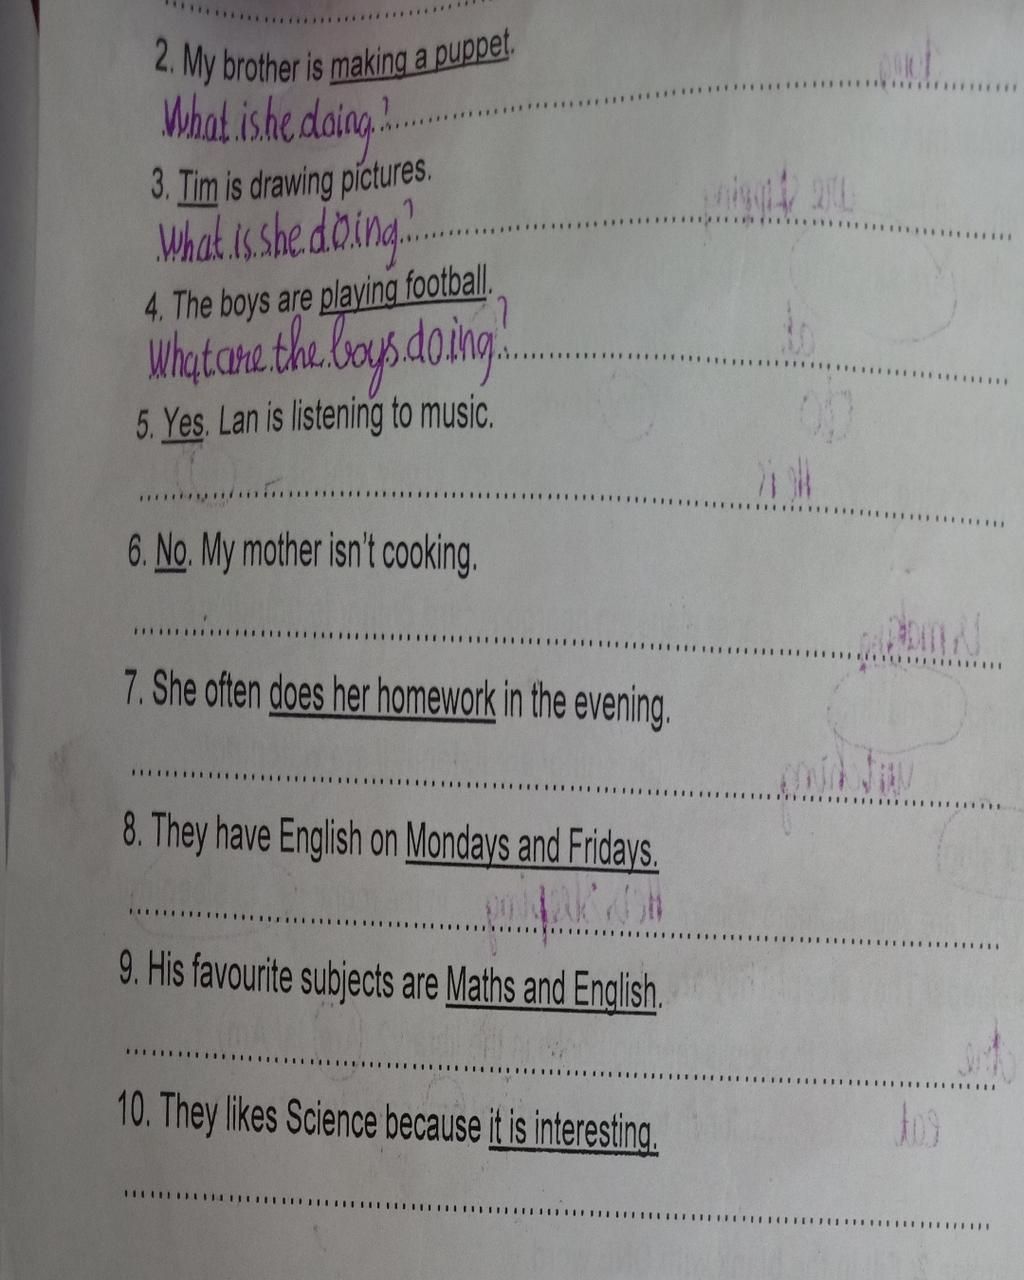 2. My brother is making a puppet.
What is he doing?
3. Tim is drawing pictures.
What is she doing?
4. The boys are playing football.
What are the boys doing?
5. Yes. Lan is listening to music.
6. No. My mother isn't cooking.
7. She often does her homework in the evening.
8. They have English on Mondays and Fridays.
9. His favourite subjects are Maths and English.
10. They likes Science because it is interesting.